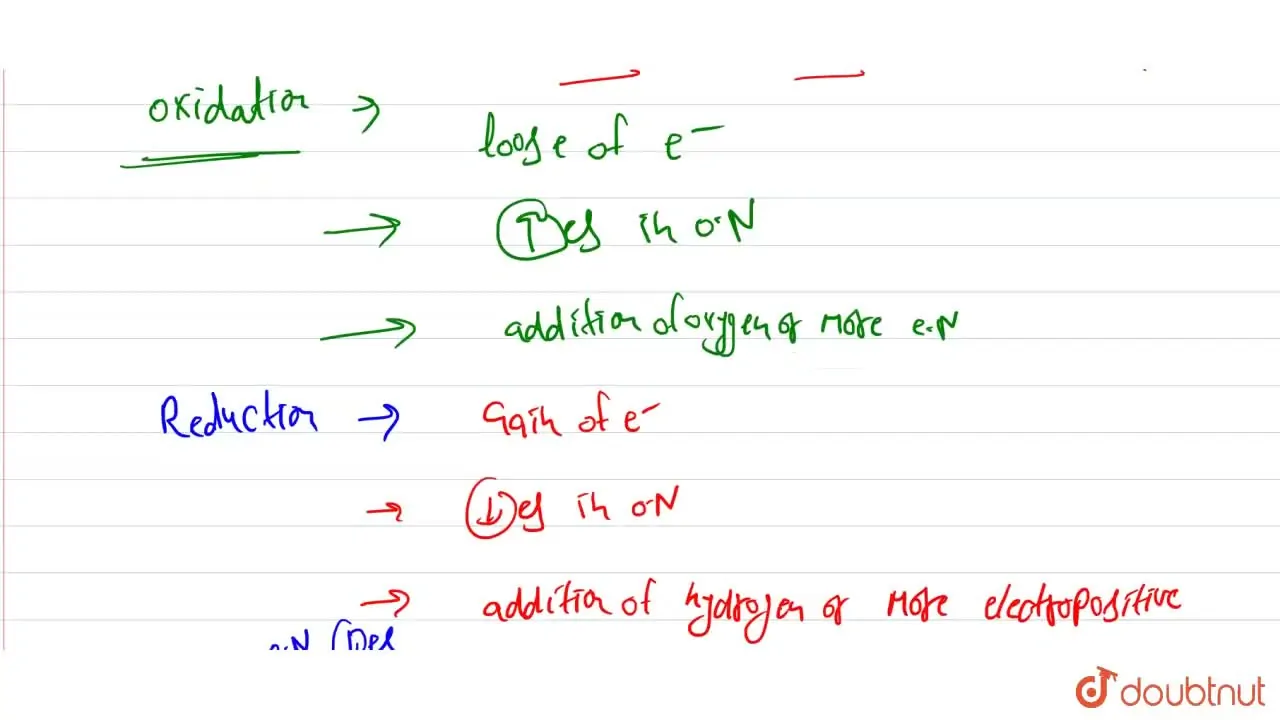 oxidation → loose of e⁻
→ ↑es in O.N
→ addition of oxygen or more e.N
Reduction → Gain of e⁻
→ ↓es in O.N
→ addition of hydrogen or more electropositive
doubtnut